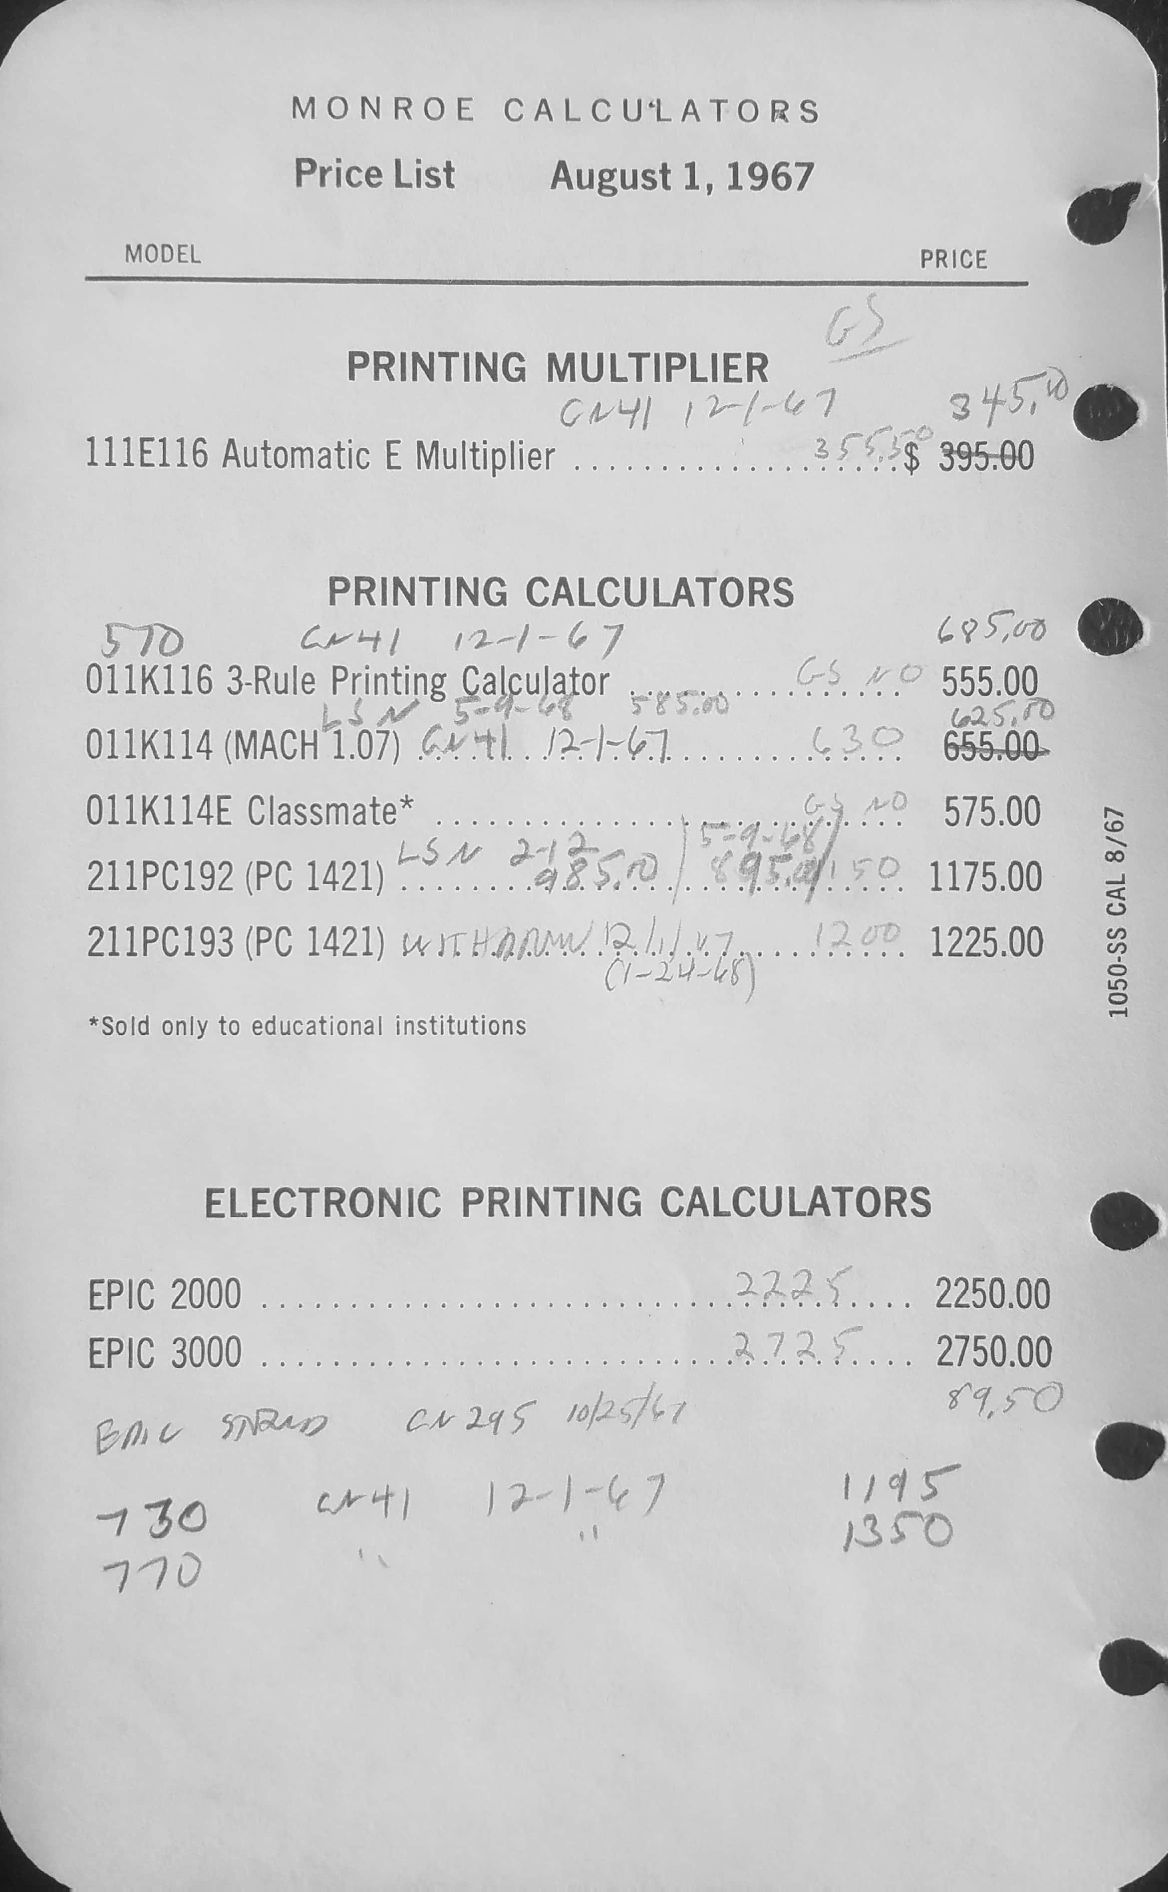 MONROE CALCULATORS
Price List August 1, 1967
MODEL PRICE
GS
PRINTING MULTIPLIER
CN41 12-1-67 345.00
111E116 Automatic E Multiplier ........................ 355.50 $ 395.00
PRINTING CALCULATORS
570 CN41 12-1-67 685.00
011K116 3-Rule Printing Calculator ................ GS NO 555.00
LSN 5-9-68 585.00 625.00
011K114 (MACH 1.07) CN41 12-1-67 ............ 630 655.00
011K114E Classmate* ........................ GS NO 575.00
LSN 2-12 5-9-68
211PC192 (PC 1421) ........ 985.00 / 895.00 1150 1175.00
211PC193 (PC 1421) WITHDRAWN 12/1/67 ........ 1200 1225.00
(1-24-68)
*Sold only to educational institutions
1050-SS CAL 8/67
ELECTRONIC PRINTING CALCULATORS
EPIC 2000 ........................ 2225 .... 2250.00
EPIC 3000 ........................ 2725 .... 2750.00
EPIC STAND CN 295 10/25/67 89.50
730 CN41 12-1-67 1195
770 " " 1350